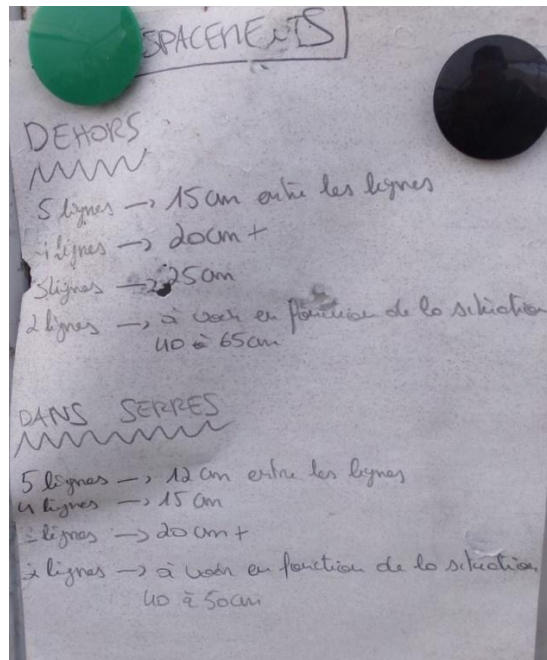 SPACEMENTS
DEHORS
5 lignes → 15 cm entre les lignes
4 lignes → 20 cm +
3 lignes → 25 cm
2 lignes → à voir en fonction de la situation
40 à 65 cm
DANS SERRES
5 lignes → 12 cm entre les lignes
4 lignes → 15 cm
lignes → 20 cm +
2 lignes → à voir en fonction de la situation
40 à 50 cm